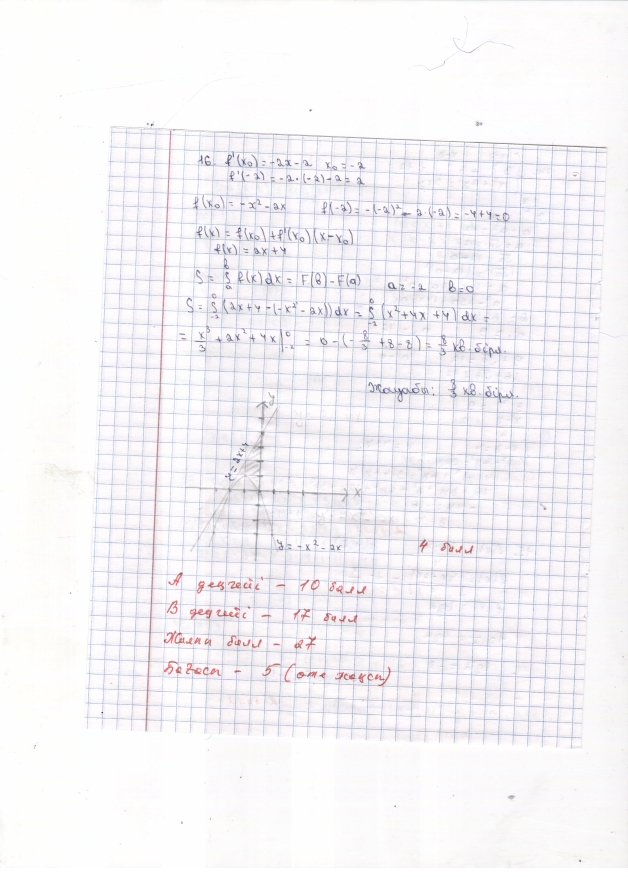 16. f'(x₀) = -2x - 2 x₀ = -2
f'(-2) = -2·(-2) - 2 = 2
f(x₀) = -x² - 2x f(-2) = -(-2)² - 2·(-2) = -4+4=0
f(x) = f(x₀) + f'(x₀)(x - x₀)
f(x) = 2x + 4
S = ∫ₐᵇ f(x)dx = F(b) - F(a) a = -2 b = 0
S = ∫₋₂⁰ (2x + 4 - (-x² - 2x))dx = ∫₋₂⁰ (x² + 4x + 4)dx =
= x³/3 + 2x² + 4x |₋₂⁰ = 0 - (-8/3 + 8 - 8) = 8/3 кв.бірл.
Жауабы: 8/3 кв.бірл.
y
y = 2x+4
x
y = -x² - 2x
4 балл
А деңгейі - 10 балл
В деңгейі - 17 балл
Жалпы балл - 27
Бағасы - 5 (өте жақсы)